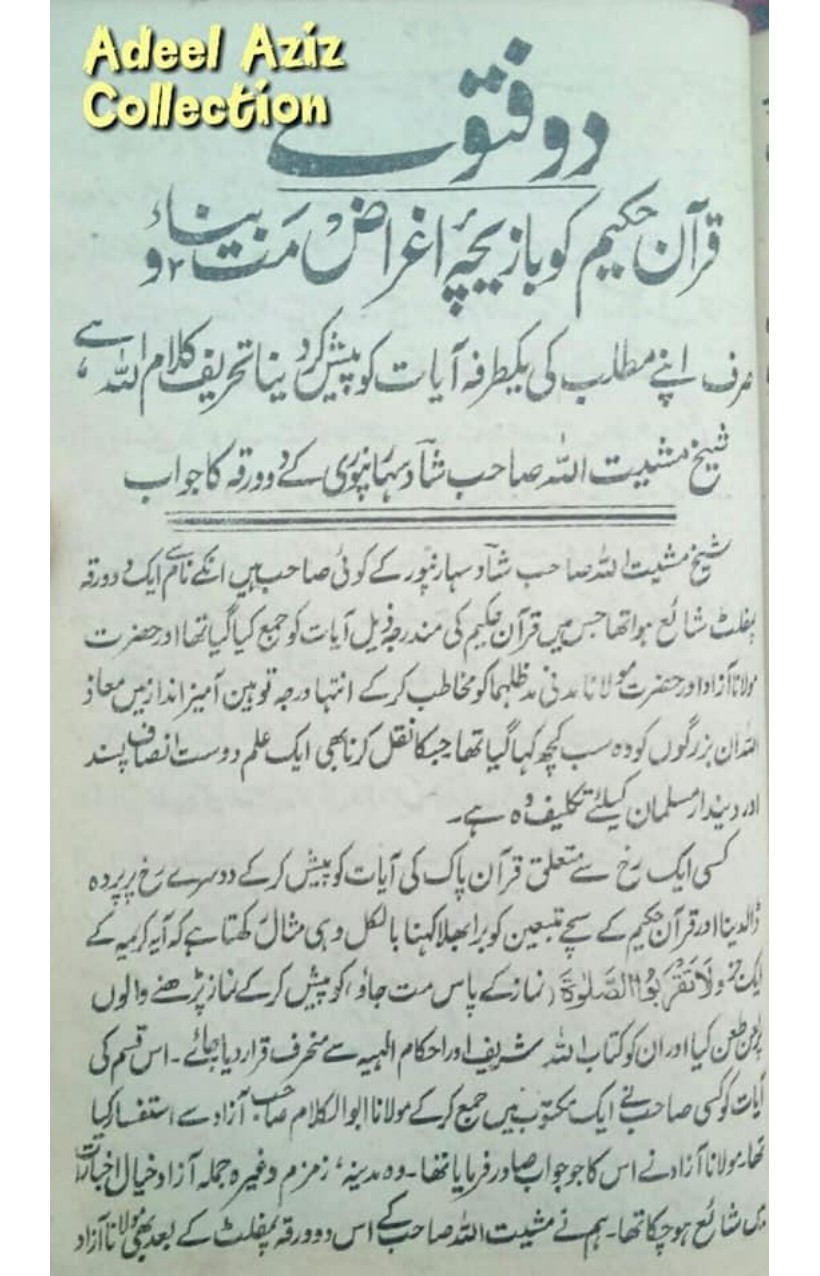 Adeel Aziz
Collection
دو فتوے
قرآن حکیم کو بازیچۂ اغراض مَت بناؤ
صرف اپنے مطلب کی یکطرفہ آیات کو پیش کردینا تحریف کلام اللہ ہے،
شیخ مشیت اللہ صاحب شاد سہارنپوری کے دو ورقہ کا جواب
شیخ مشیت اللہ صاحب شاد سہارنپور کے کوئی صاحب ہیں انکے نام سے ایک دو ورقہ
پمفلٹ شائع ہوا تھا جس میں قرآن حکیم کی مندرجہ ذیل آیات کو جمع کیا گیا تھا اور حضرت
مولانا آزاد اور حضرت مولانا مدنی مدظلہما کو مخاطب کر کے انتہا درجہ توہین آمیز انداز میں معاذ
اللہ ان بزرگوں کو وہ سب کچھ کہا گیا تھا جسکا نقل کرنا بھی ایک علم دوست انصاف پسند
اور دیندار مسلمان کیلئے تکلیف دہ ہے۔
کسی ایک رخ سے متعلق قرآن پاک کی آیات کو پیش کر کے دوسرے رخ پر پردہ
ڈالدینا اور قرآن حکیم کے سچے متبعین کو برا بھلا کہنا بالکل وہی مثال رکھتا ہے کہ آیہ کریمہ کے
ایک جزو لَا تَقْرَبُوا الصَّلٰوۃَ (نماز کے پاس مت جاؤ) کو پیش کر کے نماز پڑھنے والوں
پر لعن طعن کیا اور ان کو کتاب اللہ شریف اور احکام الٰہیہ سے منحرف قرار دیا جائے۔ اس قسم کی
آیات کو کسی صاحب نے ایک مکتوب میں جمع کر کے مولانا ابوالکلام صاحب آزاد سے استفسار کیا
تھا۔ مولانا آزاد نے اس کا جو جواب صادر فرمایا تھا۔ وہ مدینہ، زمزم وغیرہ جملہ آزاد خیال اخبارات
میں شائع ہو چکا تھا۔ ہم نے مشیت اللہ صاحب کے اس دو ورقہ پمفلٹ کے بعد بھی مولانا آزاد